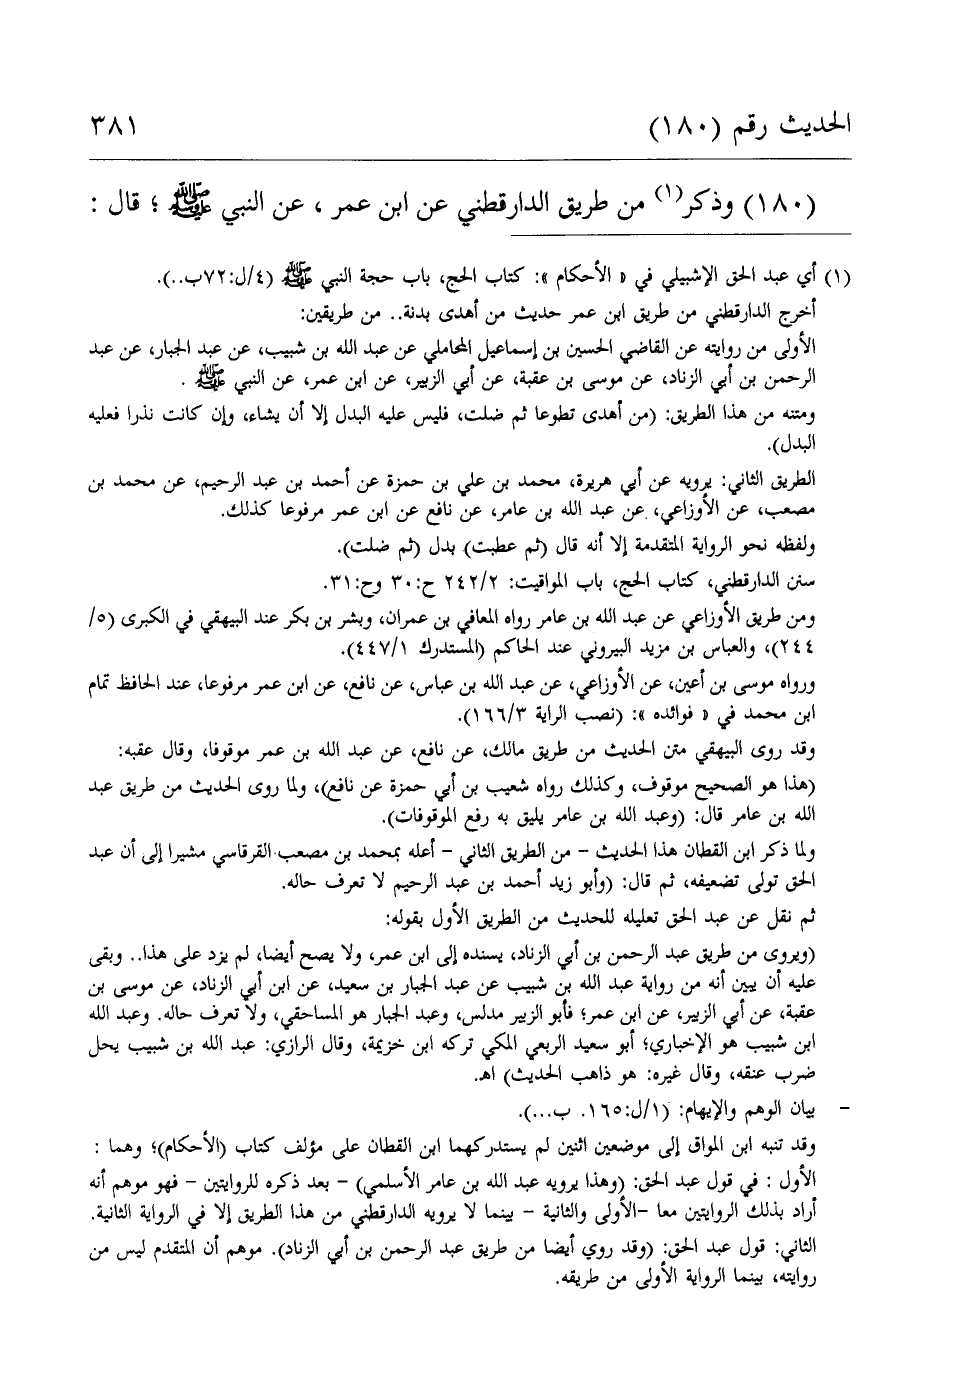 الحديث رقم (١٨٠) ٣٨١
(١٨٠) وذكر(١) من طريق الدارقطني عن ابن عمر ، عن النبي ﷺ ؛ قال :
(١) أي عبد الحق الإشبيلي في « الأحكام »: كتاب الحج، باب حجة النبي ﷺ (٤/ل:٧٢ب..).
أخرج الدارقطني من طريق ابن عمر حديث من أهدى بدنة.. من طريقين:
الأولى من روايته عن القاضي الحسين بن إسماعيل المحاملي عن عبد الله بن شبيب، عن عبد الجبار، عن عبد
الرحمن بن أبي الزناد، عن موسى بن عقبة، عن أبي الزبير، عن ابن عمر، عن النبي ﷺ .
ومتنه من هذا الطريق: (من أهدى تطوعا ثم ضلت، فليس عليه البدل إلا أن يشاء، وإن كانت نذرا فعليه
البدل).
الطريق الثاني: يرويه عن أبي هريرة، محمد بن علي بن حمزة عن أحمد بن عبد الرحيم، عن محمد بن
مصعب، عن الأوزاعي، عن عبد الله بن عامر، عن نافع عن ابن عمر مرفوعا كذلك.
ولفظه نحو الرواية المتقدمة إلا أنه قال (ثم عطبت) بدل (ثم ضلت).
سنن الدارقطني، كتاب الحج، باب المواقيت: ٢٤٢/٢ ح:٣٠ وح:٣١.
ومن طريق الأوزاعي عن عبد الله بن عامر رواه المعافي بن عمران، وبشر بن بكر عند البيهقي في الكبرى (٥/
٢٤٤)، والعباس بن مزيد البيروني عند الحاكم (المستدرك ٤٤٧/١).
ورواه موسى بن أعين، عن الأوزاعي، عن عبد الله بن عباس، عن نافع، عن ابن عمر مرفوعا، عند الحافظ تمام
ابن محمد في « فوائده »: (نصب الراية ١٦٦/٣).
وقد روى البيهقي متن الحديث من طريق مالك، عن نافع، عن عبد الله بن عمر موقوفا، وقال عقبه:
(هذا هو الصحيح موقوف، وكذلك رواه شعيب بن أبي حمزة عن نافع)، ولما روى الحديث من طريق عبد
الله بن عامر قال: (وعبد الله بن عامر يليق به رفع الموقوفات).
ولما ذكر ابن القطان هذا الحديث - من الطريق الثاني - أعله بمحمد بن مصعب القرقاسي مشيرا إلى أن عبد
الحق تولى تضعيفه، ثم قال: (وأبو زيد أحمد بن عبد الرحيم لا تعرف حاله.
ثم نقل عن عبد الحق تعليله للحديث من الطريق الأول بقوله:
(ويروى من طريق عبد الرحمن بن أبي الزناد، يسنده إلى ابن عمر، ولا يصح أيضا، لم يزد على هذا.. وبقى
عليه أن يبين أنه من رواية عبد الله بن شبيب عن عبد الجبار بن سعيد، عن ابن أبي الزناد، عن موسى بن
عقبة، عن أبي الزبير، عن ابن عمر؛ فأبو الزبير مدلس، وعبد الجبار هو المساحقي، ولا تعرف حاله. وعبد الله
ابن شبيب هو الإخباري؛ أبو سعيد الربعي المكي تركه ابن خزيمة، وقال الرازي: عبد الله بن شبيب يحل
ضرب عنقه، وقال غيره: هو ذاهب الحديث) اهـ.
- بيان الوهم والإيهام: (١/ل:١٦٥. ب...).
وقد تنبه ابن المواق إلى موضعين اثنين لم يستدركهما ابن القطان على مؤلف كتاب (الأحكام)؛ وهما :
الأول : في قول عبد الحق: (وهذا يرويه عبد الله بن عامر الأسلمي) - بعد ذكره للروايتين - فهو موهم أنه
أراد بذلك الروايتين معا -الأولى والثانية - بينما لا يرويه الدارقطني من هذا الطريق إلا في الرواية الثانية.
الثاني: قول عبد الحق: (وقد روي أيضا من طريق عبد الرحمن بن أبي الزناد). موهم أن المتقدم ليس من
روايته، بينما الرواية الأولى من طريقه.